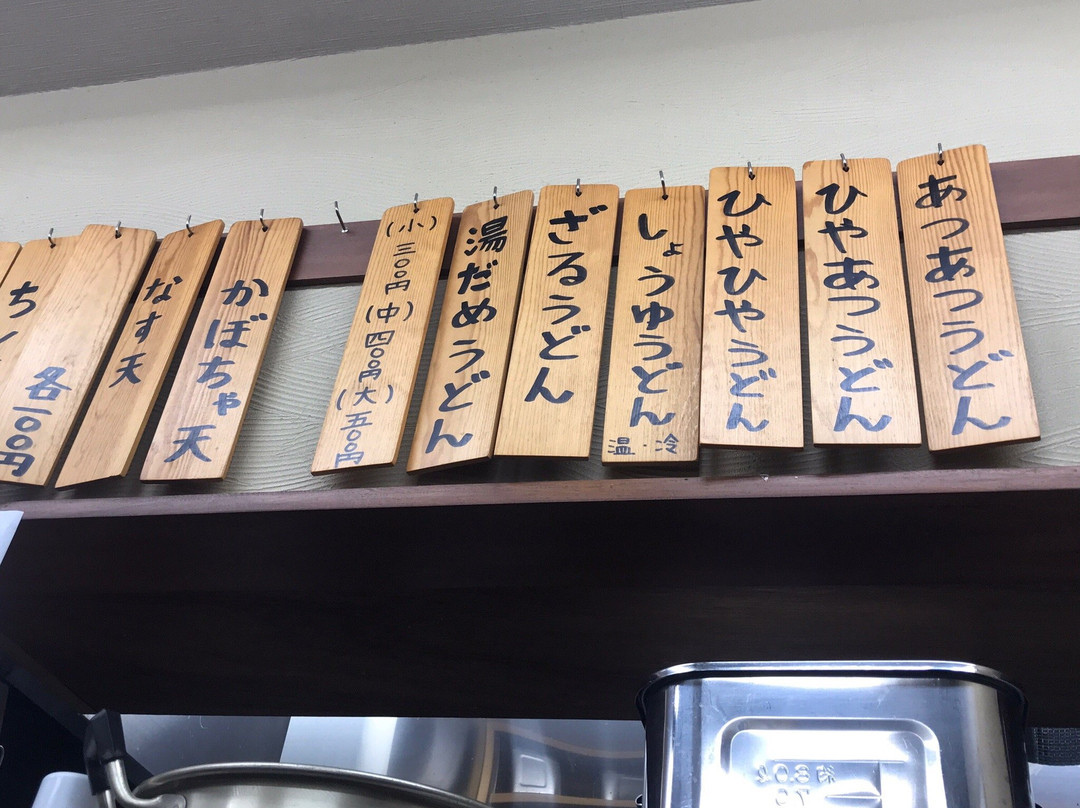 あつあつうどん
ひやあつうどん
ひやひやうどん
しょうゆうどん
温・冷
ざるうどん
湯だめうどん
(小)三〇〇円(中)四〇〇円(大)五〇〇円
かぼちゃ天
なす天
各一〇〇円
ち